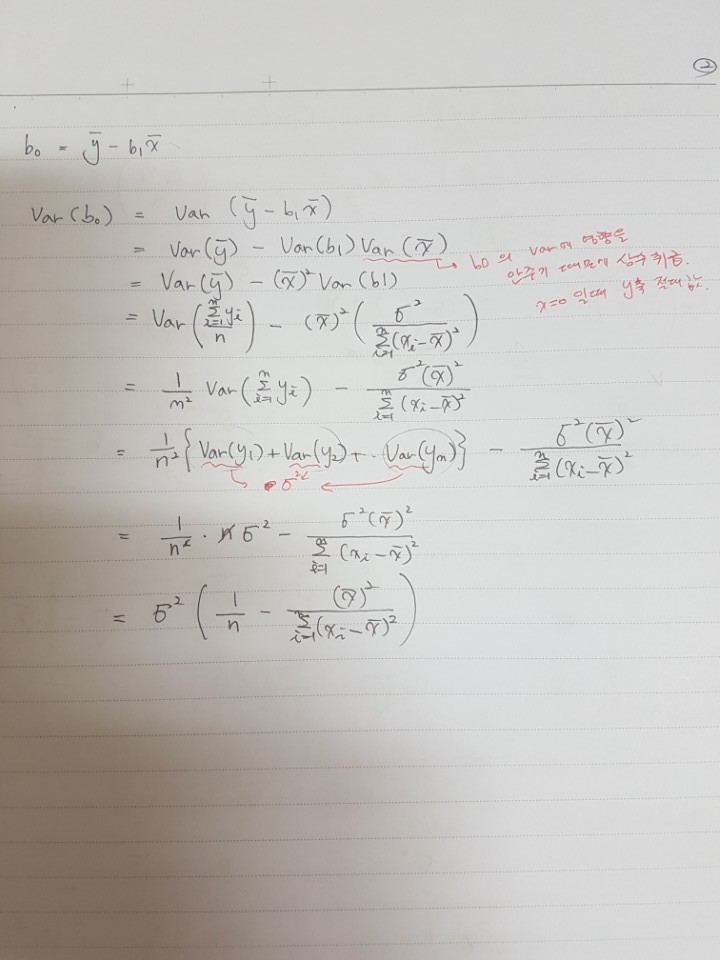 ②
b₀ = ȳ - b₁x̄
Var(b₀) = Var (ȳ - b₁x̄)
= Var(ȳ) - Var(b₁)Var(x̄)
→ b0의 var에 영향을
안주기 때문에 상수 취급.
x=0 일때 y축 절대값.
= Var(ȳ) - (x̄)² Var(b1)
= Var(∑ᵢ₌₁ⁿ yᵢ / n) - (x̄)² (σ² / ∑ᵢ₌₁ⁿ(xᵢ-x̄)²)
= 1/n² Var(∑ᵢ₌₁ⁿ yᵢ) - σ²(x̄)² / ∑ᵢ₌₁ⁿ(xᵢ-x̄)²
= 1/n² {Var(y₁)+Var(y₂)+··Var(yₙ)} - σ²(x̄)² / ∑ᵢ₌₁ⁿ(xᵢ-x̄)²
σ²
= 1/n² · n σ² - σ²(x̄)² / ∑ᵢ₌₁ⁿ(xᵢ-x̄)²
= σ² (1/n - (x̄)² / ∑ᵢ₌₁ⁿ(xᵢ-x̄)²)